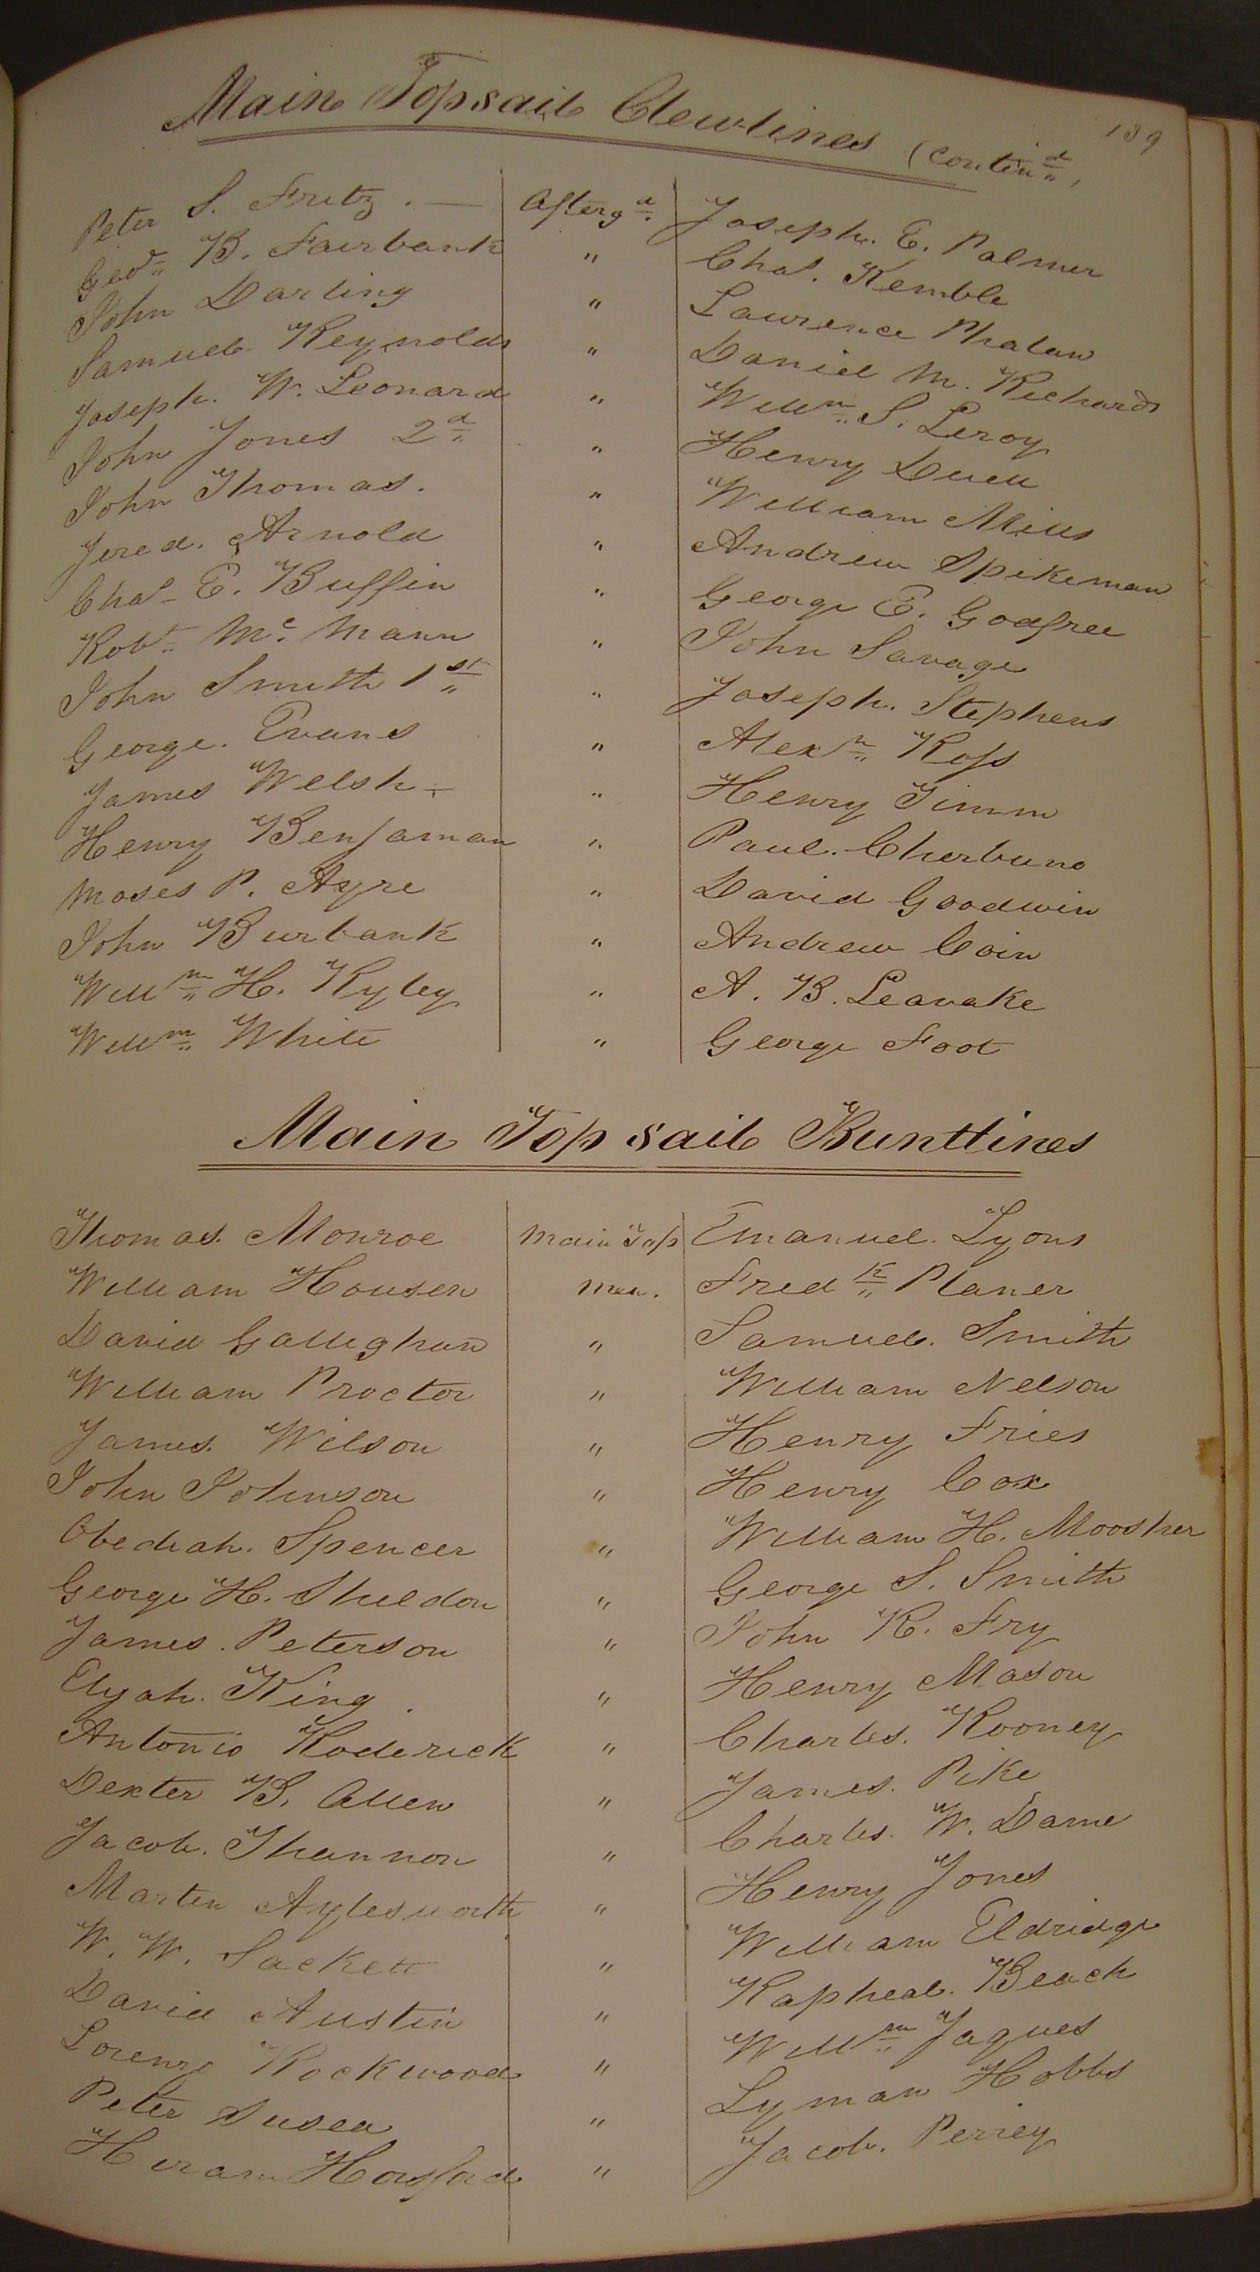 139
Main Topsail Clewlines (Contin.d)
Peter S. Fritz . — Afterg.d Joseph. E. Palmer
Geo. B. Fairbank " Chas. Kemble
John Darling " Laurence Phalan
Samuel Reynolds " Daniel M. Richards
Joseph. W. Leonard " Willm. S. Leroy
John Jones 2d " Henry Duell
John Thomas. " William Mills
Jered. Arnold " Andrew Spikeman
Chas. E. Buffin " George E. Godfree
Robt. Mc. Mann " John Savage
John Smith 1st " Joseph. Stephens
George. Evans " Alexr. Ross
James Welsh - " Henry Timm
Henry Benjaman " Paul. Cherbuno
Moses P. Ayre " David Goodwin
John Burbank " Andrew Coin
Willm. H. Ryley " A. B. Leavake
Willm. White " George Foot
Main Top sail Buntlines
Thomas. Monroe Main Top Emanuel. Lyons
William Housen Men. Fredk. Planer
David Gallighan " Samuel. Smith
William Proctor " William Nelson
James. Wilson " Henry Fries
John Johnson " Henry Cox
Obediah. Spencer " William H. Moosher
George H. Sheldon " George S. Smith
James. Peterson " John R. Fry
Elijah. King " Henry Mason
Antonio Roderick " Charles. Rooney
Dexter B. Allen " James. Pike
Jacob. Thannon " Charles. W. Dame
Martin Aylesworth " Henry Jones
W. W. Sackett " William Eldridge
David Austin " Rapheal. Beach
Lorenzo Rockwood " Willm. Jaques
Peter Susea " Lyman Hobbs
Hiram Horsford " Jacob. Perrey